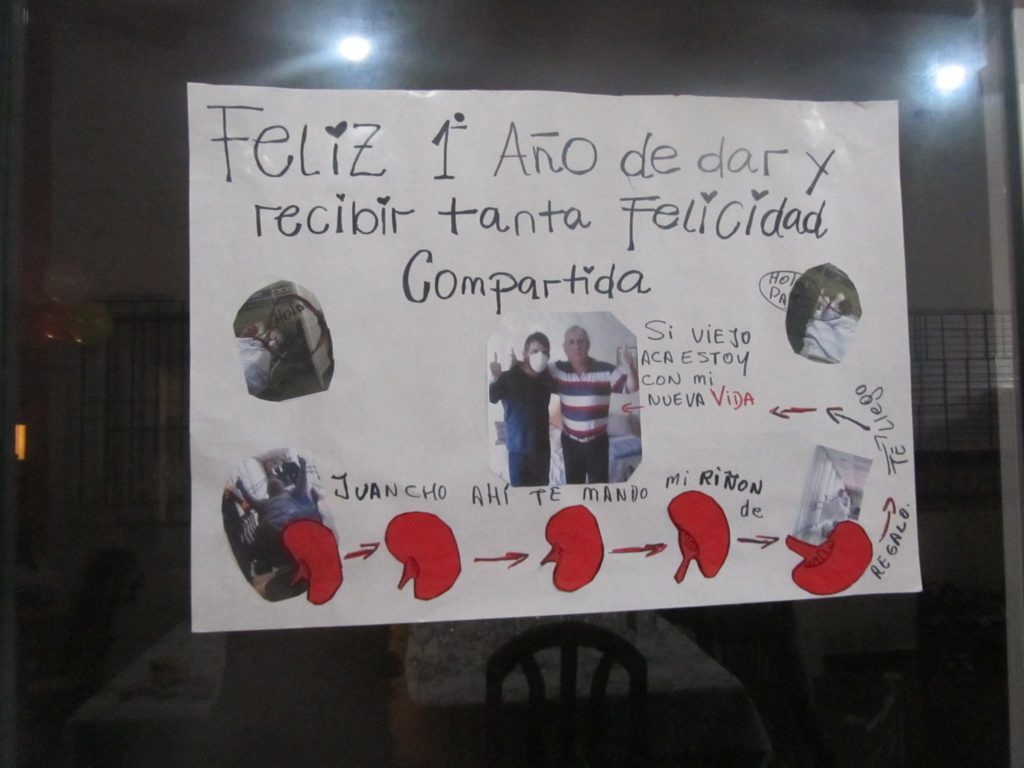 Feliz 1° Año de dar y
recibir tanta Felicidad
Compartida
Hola
Si VIEJO
ACA ESTOY
CON mi
NUEVA ViDA
JUANCHO AHÍ TE MANDO mi RIÑON
de
REGALO.
TE LLEGO